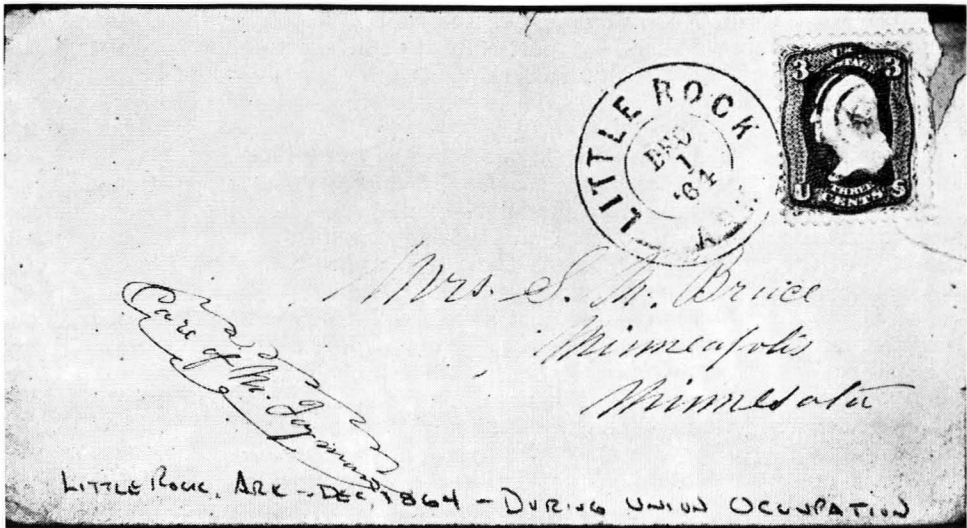 LITTLE ROCK
DEC
1
'64
ARK
3 3
U.S.
POSTAGE
U S
THREE
CENTS
Mrs. S. M. Bruce
Minneapolis
Minnesota
Care of M.
LITTLE ROCK, ARK -- DEC 1864 - DURING UNION OCCUPATION